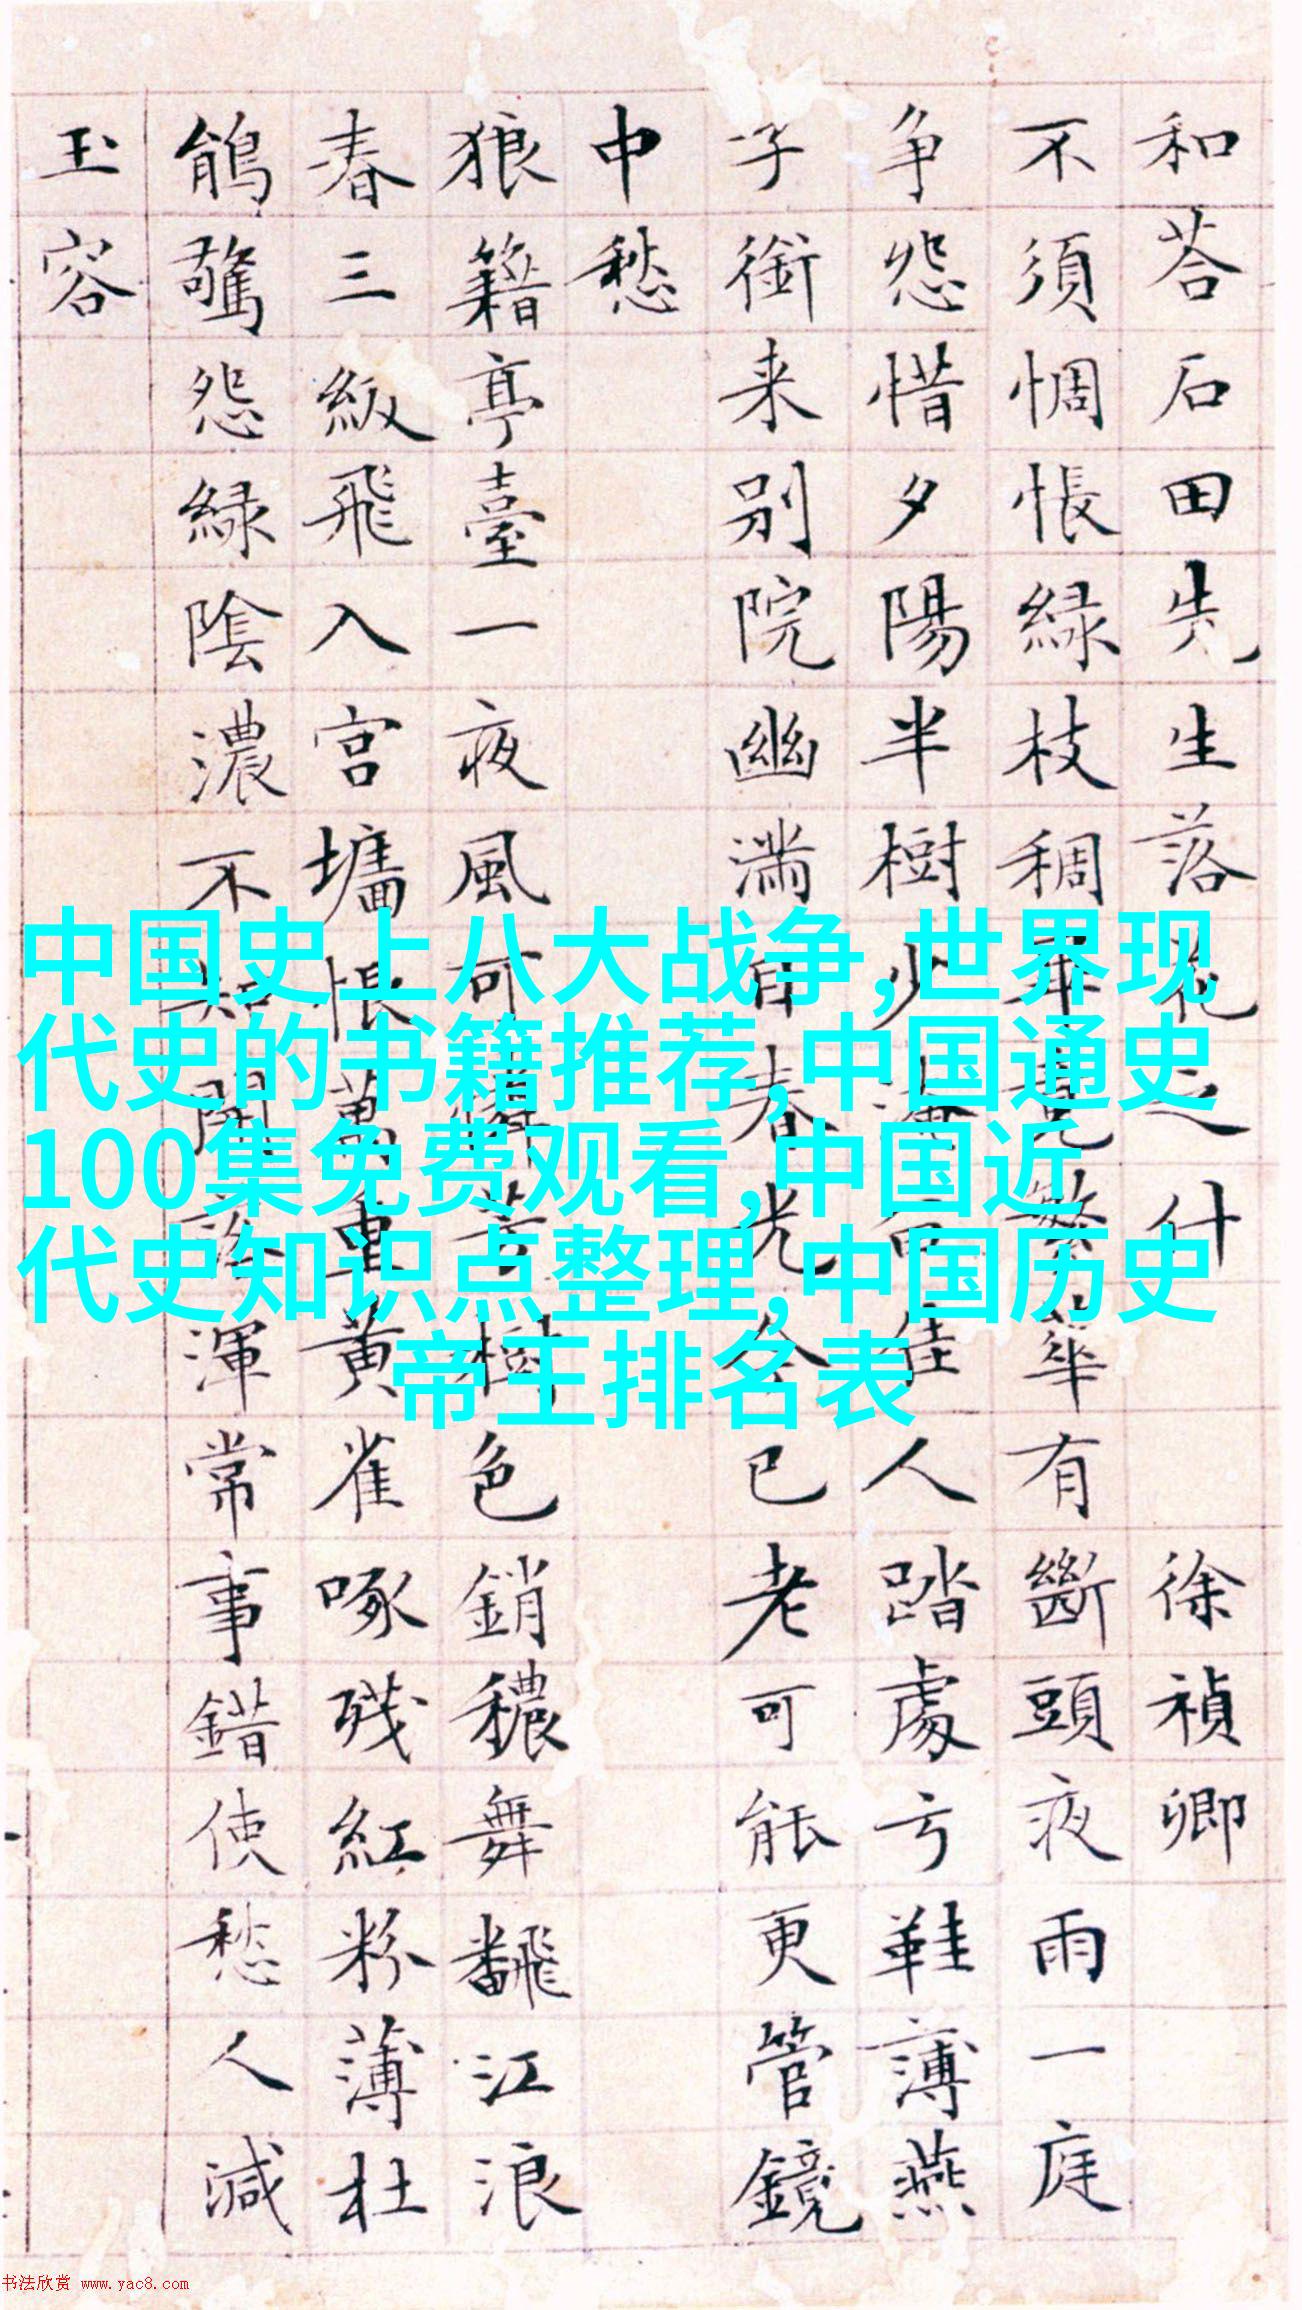 和荅石田先生落花之什 徐禎卿
不須惆悵綠枝稠畢竟繁華有斷頭夜雨一庭
争怨惜夕陽半樹少淹留佳人踏處弓鞋薄燕
子銜来別院幽滿目春光今已老可能更管鏡
中愁
狼籍亭臺一夜風可憐芳樹色銷穠舞飜江浪
春三級飛入宫墻恨萬重黄雀啄殘紅粉薄杜
鵑驚怨綠陰濃不知開落渾常事錯使愁人減
玉容
中国史上八大战争,世界现
代史的书籍推荐,中国通史
100集免费观看,中国近
代史知识点整理,中国历史
帝王排名表
书法欣赏 www.yac8.com